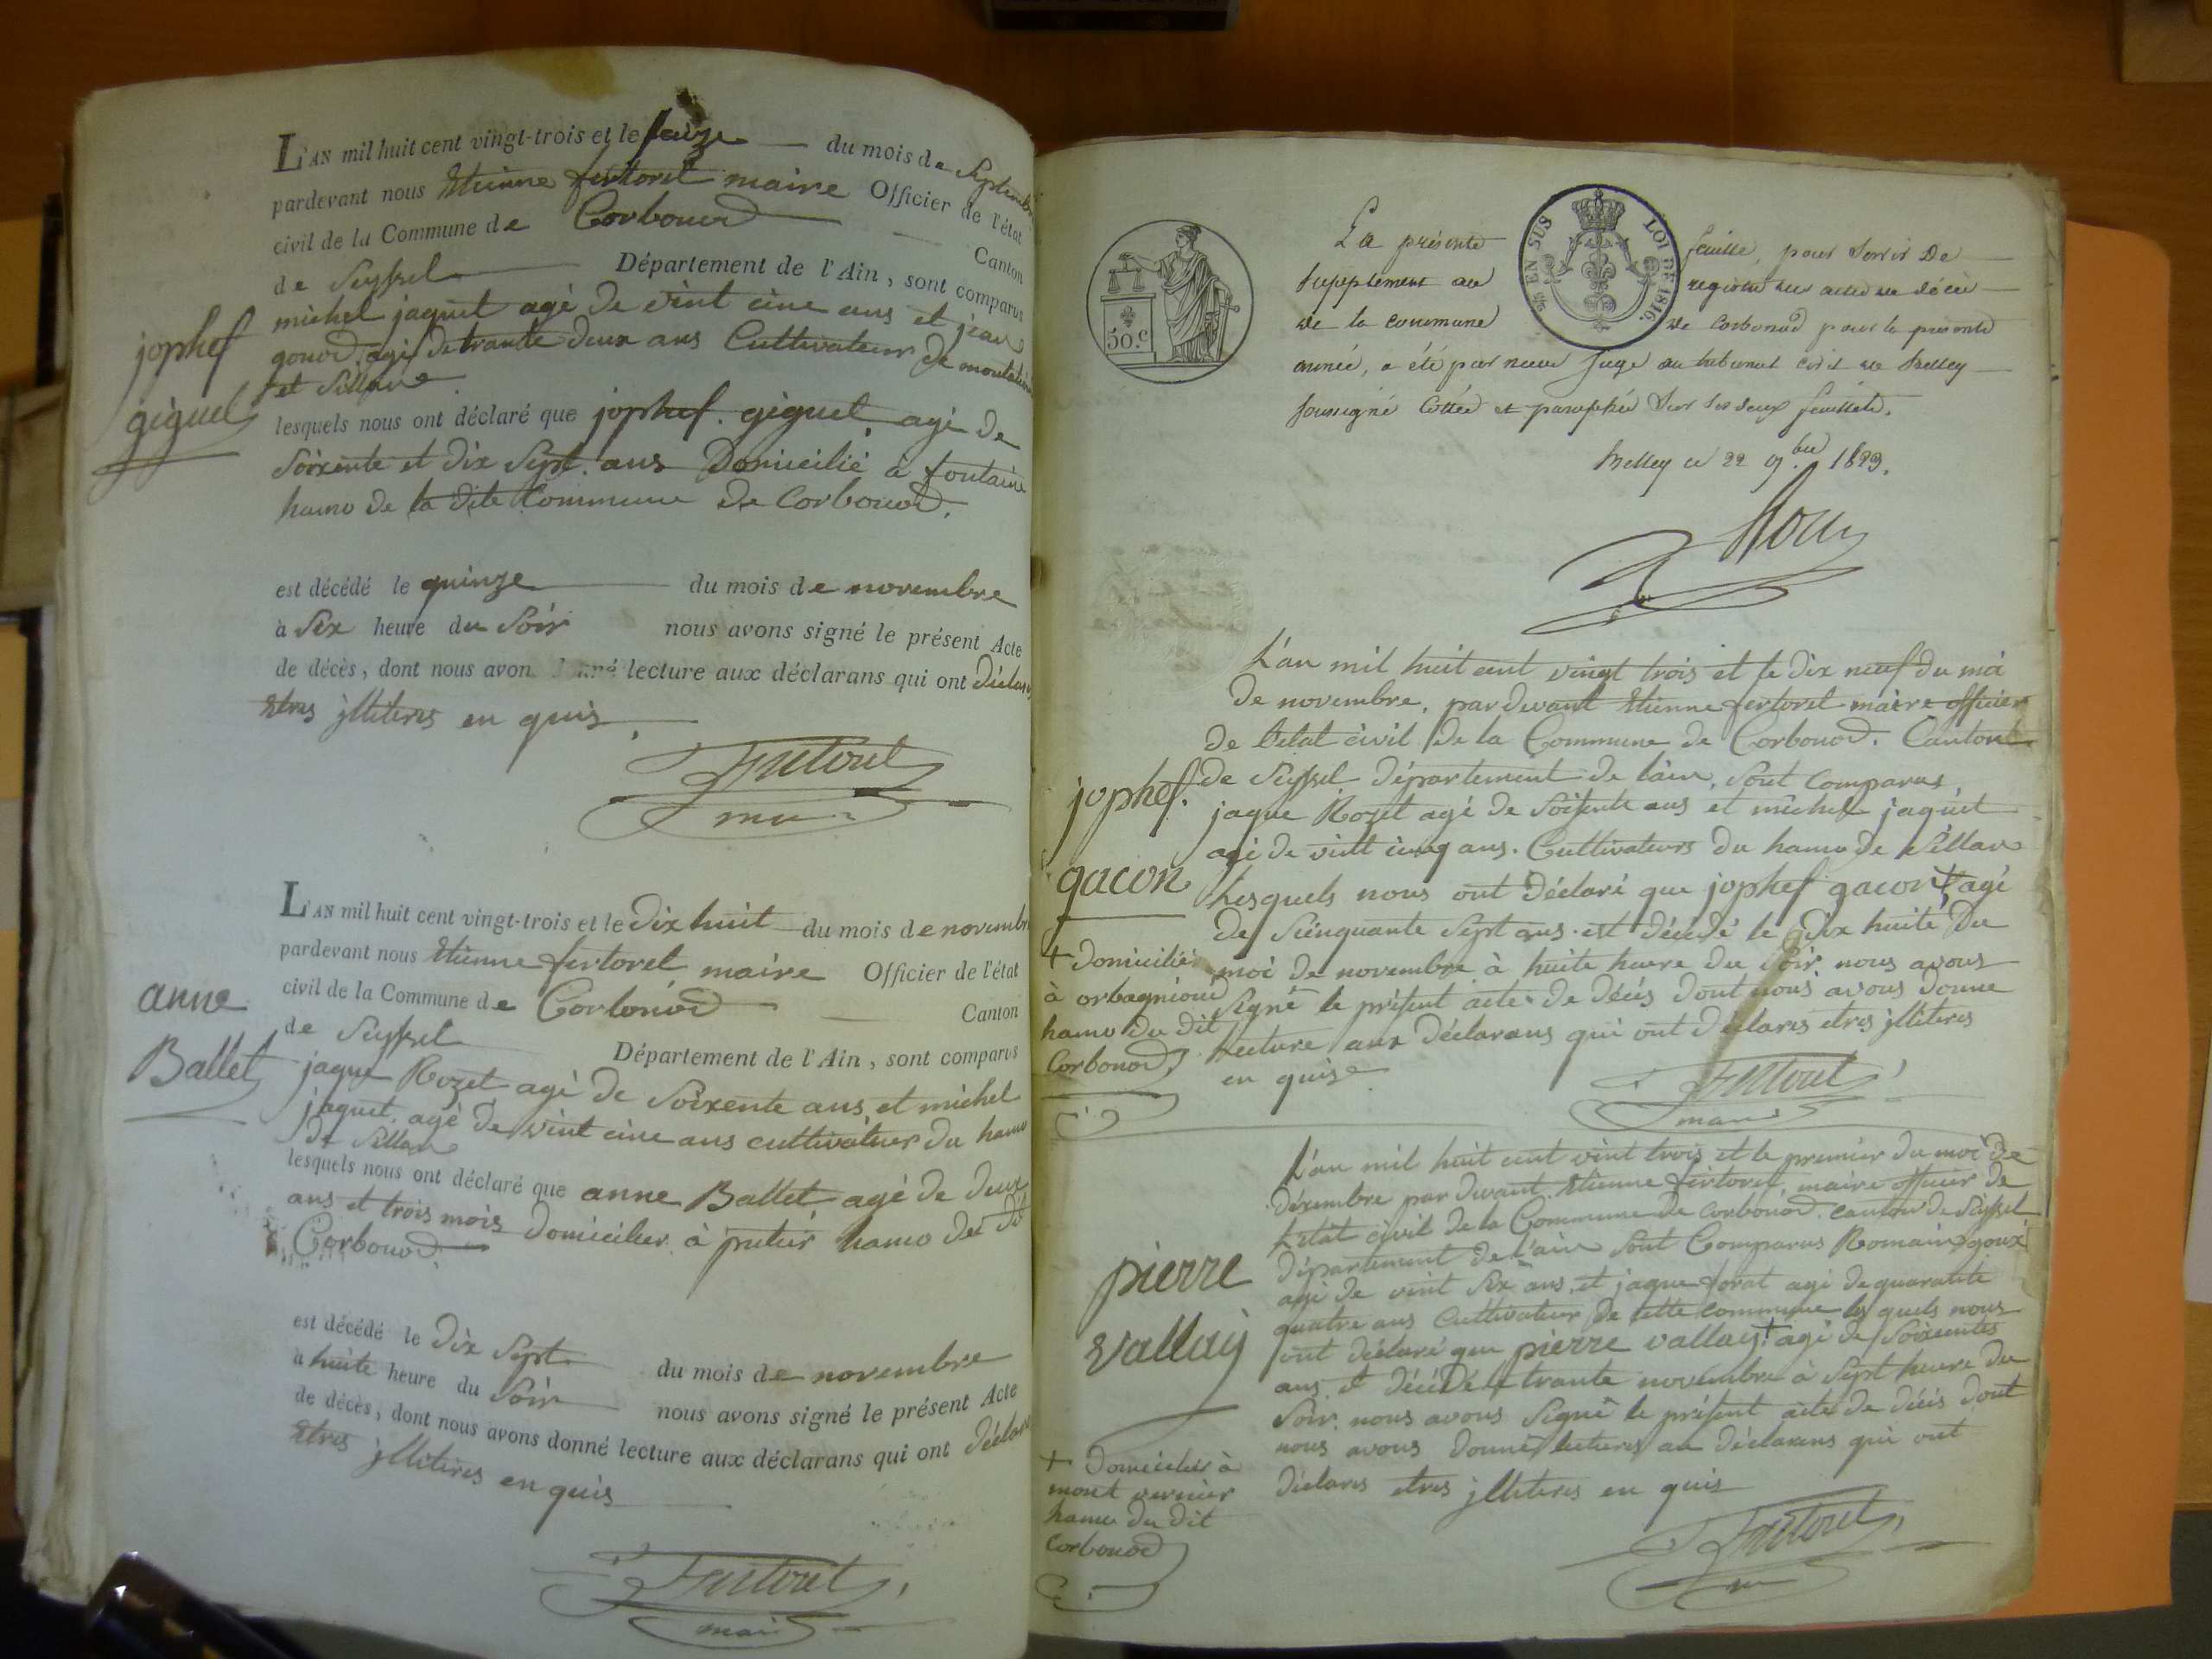 L'AN mil huit cent vingt-trois et le saize du mois de Septembre
pardevant nous Etienne fertoret maire Officier de l'état
civil de la Commune de Corbonod Canton
de Seyssel Département de l'Ain, sont comparus
michel jaquet agé de vint cinc ans et jean
gonod agé de trante deux ans Cultivateur de
et Sillan
jophef
giguet
lesquels nous ont déclaré que jophef giguet agé de
Soixente et Dix Sept ans Domicilié à fontaine
hamo de la dite Commune de Corbonod.
est décédé le quinze du mois de novembre
à Six heure du Soir nous avons signé le présent Acte
de décès, dont nous avon lecture aux déclarans qui ont
Etres jlliteres en quis
Fertoret
L'AN mil huit cent vingt-trois et le Dix huit du mois de novembre
pardevant nous Etienne fertoret maire Officier de l'état
civil de la Commune de Corbonod Canton
de Seyssel Département de l'Ain, sont comparus
anne
Ballet
jaque Rozet agé de Soixente ans et michel
jaquet agé de vint cinc ans cultivateur du hamo
de Sillan
lesquels nous ont déclaré que anne Ballet agé de deux
ans et trois mois Domicilier à hamo du dit
Corbonod.
est décédé le Dix Sept du mois de novembre
à huite heure du Soir nous avons signé le présent Acte
de décès, dont nous avons donné lecture aux déclarans qui ont
Etres jlliteres en quis
Fertoret
maire
EN SUS LOI DE 1816.
50.c
La présente feuille, pour Servir De
supplement au registre des actes de décès
de la commune de Corbonod pour la présente
année, a été par nous Juge au tribunal civil de Belley
soussigné Cottée et paraphée Sur ses deux feuillets.
Belley ce 22 9.bre 1823.
L'an mil huit cent vingt trois et le dix neuf du moi
de novembre, par devant Etienne fertoret maire officier
de l'etat civil de la Commune de Corbonod. Canton
de Seyssel Département de l'ain, sont comparus
jaque Rozet agé de Soisente ans et michel jaquet
agé de vint cinq ans. Cultivateurs du hamo de Sillan
jophef.
gacon
Lesquels nous ont Déclaré que jophef gacon + agé
de Sienquante Sept ans est décédé le Dix huite Du
moi de novembre à huite heure du Soir, nous avons
Signé le présent acte De Décès Dont nous avons Donne
Lecture aux Déclarans qui ont Déclares etres jlliteres
en quise
+ Domicilié
à orbagnioud
hamo du dit
Corbonod.
Fertoret
maire
L'an mil huit cent vint trois et le premier du moi De
dexembre par devant Etienne fertoret maire officier de
L'etat civil de la Commune de Corbonod. canton de Seyssel
Département de l'ain Sont Comparus Romain goux
agé de vint Six ans, et jaque forat agé de quarante
quatre ans Cultivateur de cette commune les quels nous
pierre
vallay
ont déclaré que pierre vallay + agé de Soixentes
ans et décédé le trante novembre à Sept heure du
Soir. nous avons Signé le présent acte de décès dont
nous avons Donné lectures au déclarans qui ont
Déclares etres jlliteres en quis
+ Domicilier à
mont vernier
hamo du dit
Corbonod
Fertoret